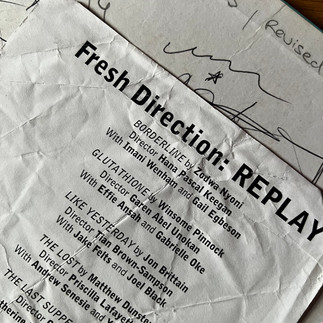 / Revised
Fresh Direction: REPLAY
BORDERLINE by Zodwa Nyoni
Director Hana Pascal Keegan
With Imani Wenham and Gail Egbeson
GLUTATHIONE by Winsome Pinnock
Director Gazen Abel Unokan
With Effie Ansah and Gabrielle Oke
LIKE YESTERDAY by Jon Brittain
Director Alan Brown-Sampson
With Jake Felts and Joel Black
THE LOST by Matthew Dunster
Director Priscilla Lafayette
With Andrew Senesie and
THE LAST SUPPE
Director